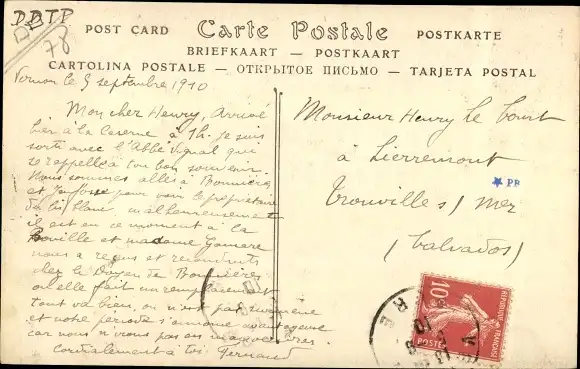 DBTP
78
POST CARD Carte Postale POSTKARTE
BRIEFKAART — POSTKAART
CARTOLINA POSTALE — ОТКРЫТОЕ ПИСЬМО — TARJETA POSTAL
Vernon le 5 septembre 1910
Mon cher Henry, Arrivé
hier à la Caserne à 7h. Je suis
sorti avec l'Abbé Vignal qui
se rappelle à ton bon souvenir.
Nous sommes allés à
et pour voir le propriétaire
malheureusement
il est en ce moment à la
Bouille et madame
nous a reçus et
chez le Doyen de
où elle fait un remplacement
tout va bien, on n'est pas
et notre période s'annonce
car nous n'irons pas en manœuvres.
Cordialement à toi Fernand
Monsieur Henry Le
à
Trouville s/ Mer
(Calvados)
PB
10c
REPUBLIQUE FRANÇAISE
POSTES